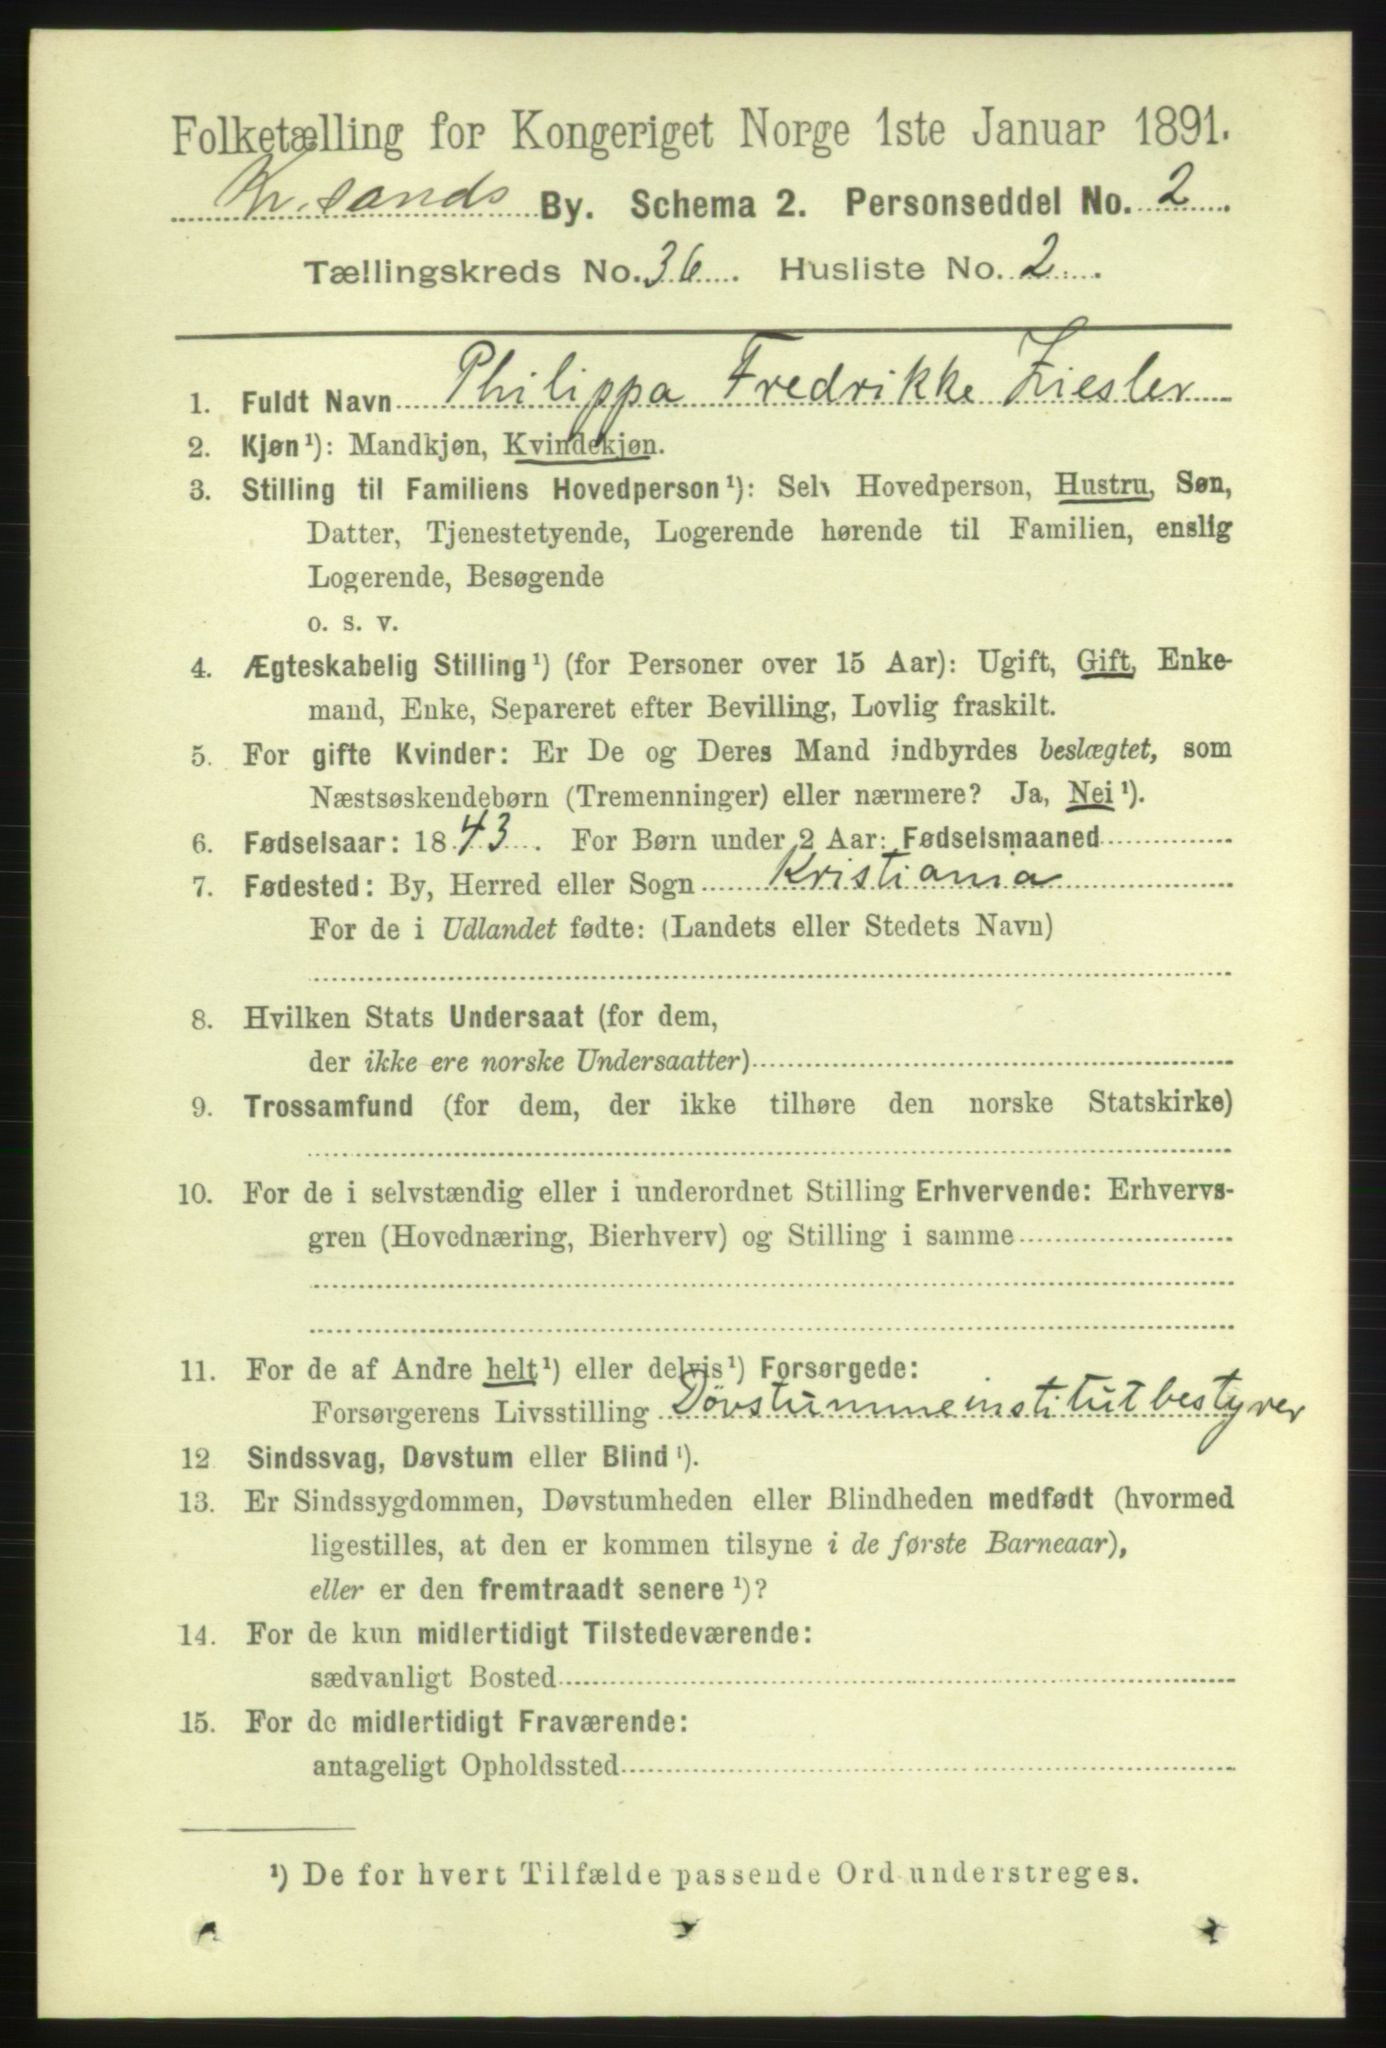 Folketælling for Kongeriget Norge 1ste Januar 1891.
Kr.sands By. Schema 2. Personseddel No. 2
Tællingskreds No. 36. Husliste No. 2
1. Fuldt Navn Philippa Fredrikke Ziesler
2. Kjøn¹): Mandkjøn, Kvindekjøn.
3. Stilling til Familiens Hovedperson¹): Selv Hovedperson, Hustru, Søn,
Datter, Tjenestetyende, Logerende hørende til Familien, enslig
Logerende, Besøgende
o. s. v.
4. Ægteskabelig Stilling¹) (for Personer over 15 Aar): Ugift, Gift, Enke-
mand, Enke, Separeret efter Bevilling, Lovlig fraskilt.
5. For gifte Kvinder: Er De og Deres Mand indbyrdes beslægtet, som
Næstsøskendebørn (Tremenninger) eller nærmere? Ja, Nei¹).
6. Fødselsaar: 1843. For Børn under 2 Aar: Fødselsmaaned
7. Fødested: By, Herred eller Sogn Kristiania
For de i Udlandet fødte: (Landets eller Stedets Navn)
8. Hvilken Stats Undersaat (for dem,
der ikke ere norske Undersaatter)
9. Trossamfund (for dem, der ikke tilhøre den norske Statskirke)
10. For de i selvstændig eller i underordnet Stilling Erhvervende: Erhvervs-
gren (Hovednæring, Bierhverv) og Stilling i samme
11. For de af Andre helt¹) eller delvis¹) Forsørgede:
Forsørgerens Livsstilling Døvstummeinstitutbestyrer
12 Sindssvag, Døvstum eller Blind¹).
13. Er Sindssygdommen, Døvstumheden eller Blindheden medfødt (hvormed
ligestilles, at den er kommen tilsyne i de første Barneaar),
eller er den fremtraadt senere¹)?
14. For de kun midlertidigt Tilstedeværende:
sædvanligt Bosted
15. For de midlertidigt Fraværende:
antageligt Opholdssted
¹) De for hvert Tilfælde passende Ord understreges.